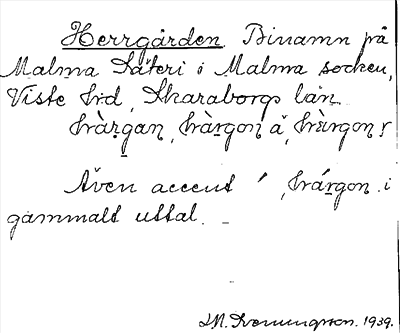 Herrgården Binamn på
Malma Säteri i Malma socken,
Viste hrd, Skaraborgs län.
hàrgan, hàrgon å, hàrgon!
Även accent ´, hárgon i
gammalt uttal.
1939.